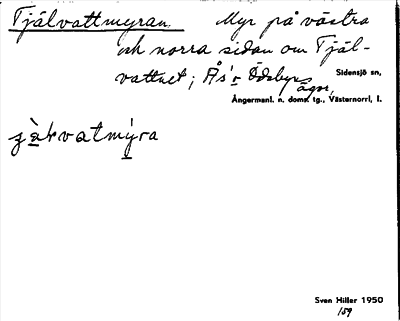 Tjälvattmyran. Myr på västra
och norra sidan om Tjäl-
vattnet; Ås's o Ödsbyns
ägor, Sidensjö sn,
Ångermanl. n. doms. tg., Västernorrl. l.
Sven Hiller 1950
159